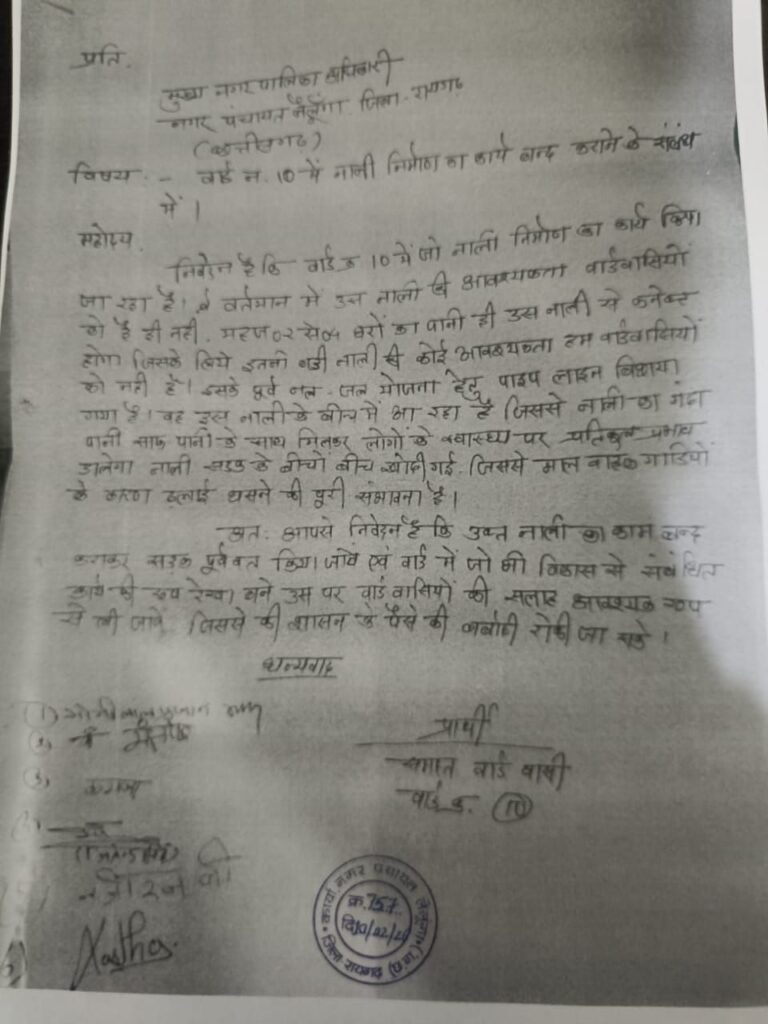 प्रति,
मुख्य नगरपालिका अधिकारी
नगर पंचायत लैलूंगा जिला-रायगढ़
(छत्तीसगढ़)
विषय :- वार्ड न. 10 में नाली निर्माण का कार्य बन्द कराने के संबंध
में।
महोदय,
निवेदन है कि वार्ड क्र 10 में जो नाली निर्माण का कार्य किया
जा रहा है। वर्तमान में उस नाली की आवश्यकता वार्डवासियों
को है ही नही, महज 02 से 04 घरों का पानी ही उस नाली से कनेक्ट
होगा जिसके लिये इतनी बड़ी नाली की कोई आवश्यकता हम वार्डवासियों
को नही है। इसके पूर्व नल-जल योजना हेतु पाइप लाइन बिछाया
गया है। वह इस नाली के बीच में आ रहा है जिससे नाली का गंदा
पानी साफ पानी के साथ मिलकर लोगों के स्वास्थ्य पर प्रतिकुल प्रभाव
डालेगा नाली सड़क के बीचों बीच खोदी गई, जिससे माल वाहक गाडियों
के कारण ढलाई धसने की पूरी संभावना है।
अतः आपसे निवेदन है कि उक्त नाली का काम बन्द
कराकर सड़क पूर्ववत किया जावें एवं वार्ड में जो भी विकास से संबंधित
कार्य की रूप रेखा बने उस पर वार्ड वासियों की सलाह आवश्यक रूप
से ली जावें, जिससे की शासन के पैसे की बर्बादी रोकी जा सके।
धन्यवाद
प्रार्थी
समस्त वार्ड वासी
वार्ड क्र. (10)
(1)
(2)
(3)
कार्या. नगर पंचायत लैलूंगा
क्र. 757
जिला रायगढ़ (छ.ग.)